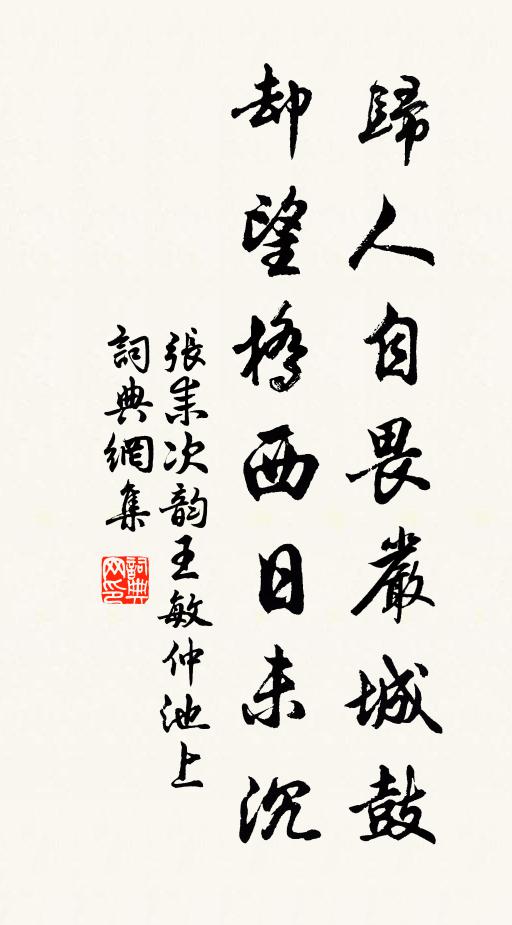 歸人自畏嚴城鼓
却望橋西日未沉
張耒次韵王敏仲池上
詞典網集
詞典网印